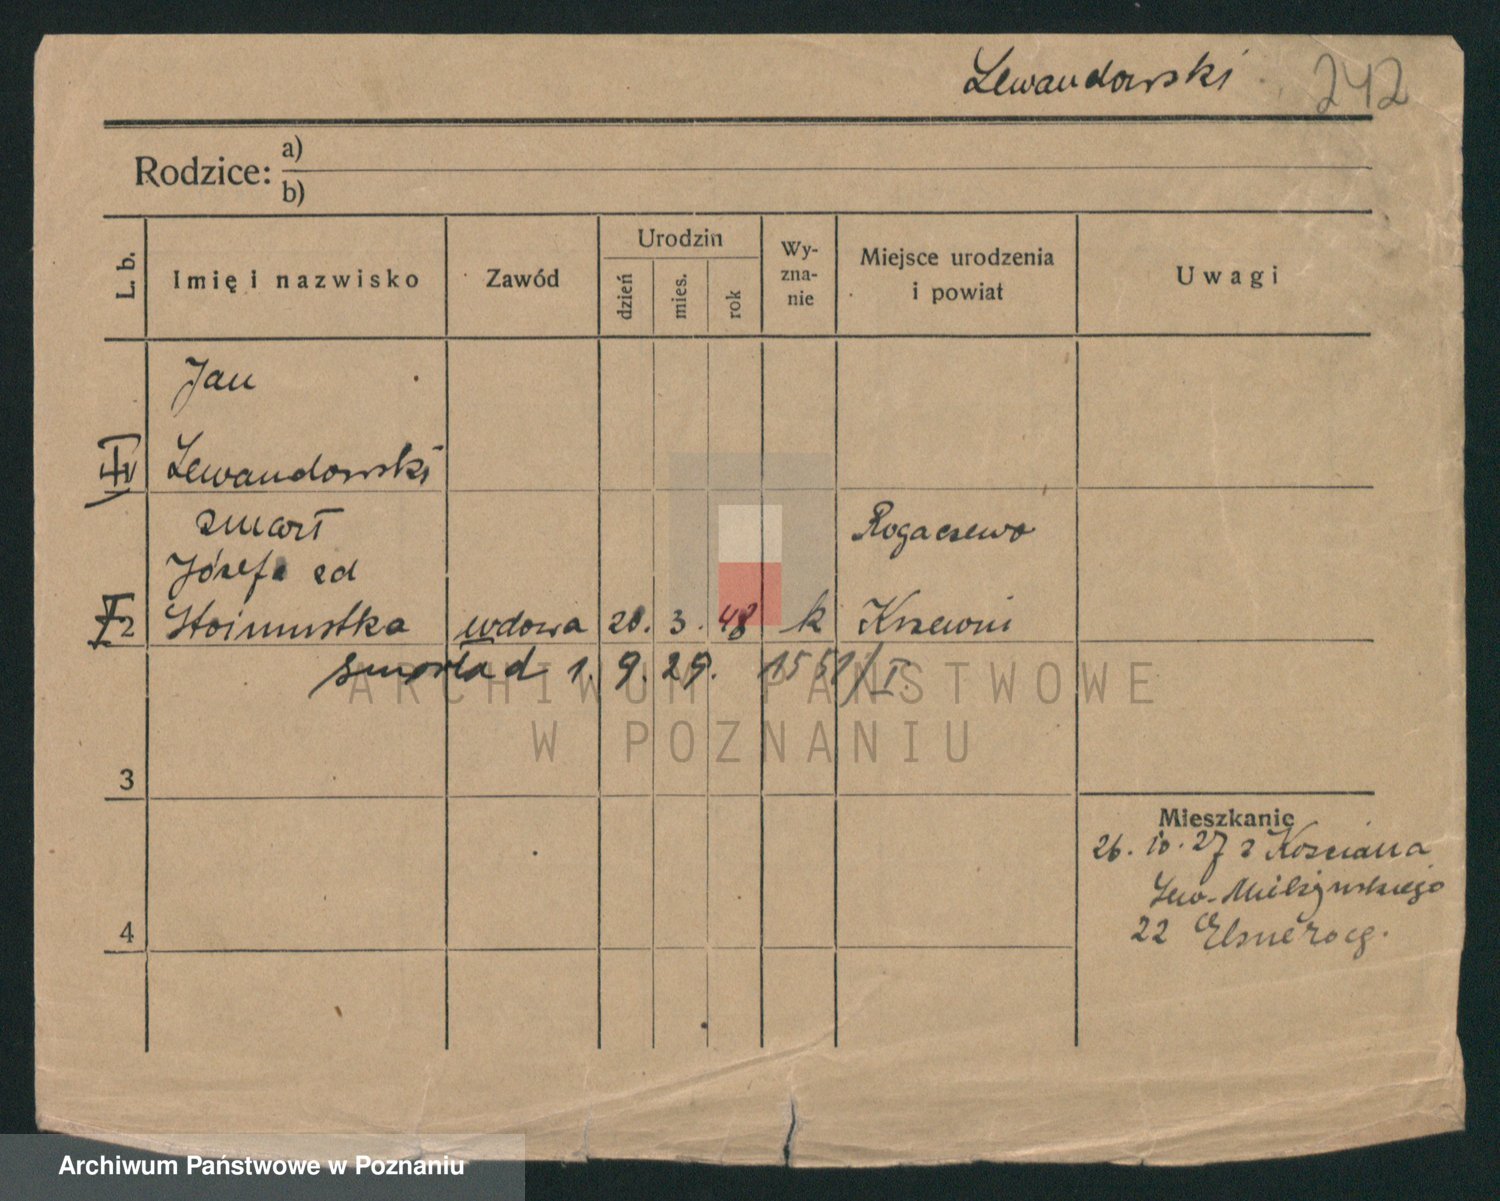 Lewandowski 242
Rodzice: a)
b)
L. b.
Imię i nazwisko
Zawód
Urodzin
dzień
mies.
rok
Wy-
zna-
nie
Miejsce urodzenia
i powiat
Uwagi
Jan
Lewandowski
zmarł
Józefa zd
wdowa 20. 3. 48 k
Rogaczewo
zmarła d 1. 9. 29. 1551/I.
3
4
Mieszkanie
26. 10. 27 z Kościana
22
ARCHIWUM PAŃSTWOWE
W POZNANIU
Archiwum Państwowe w Poznaniu